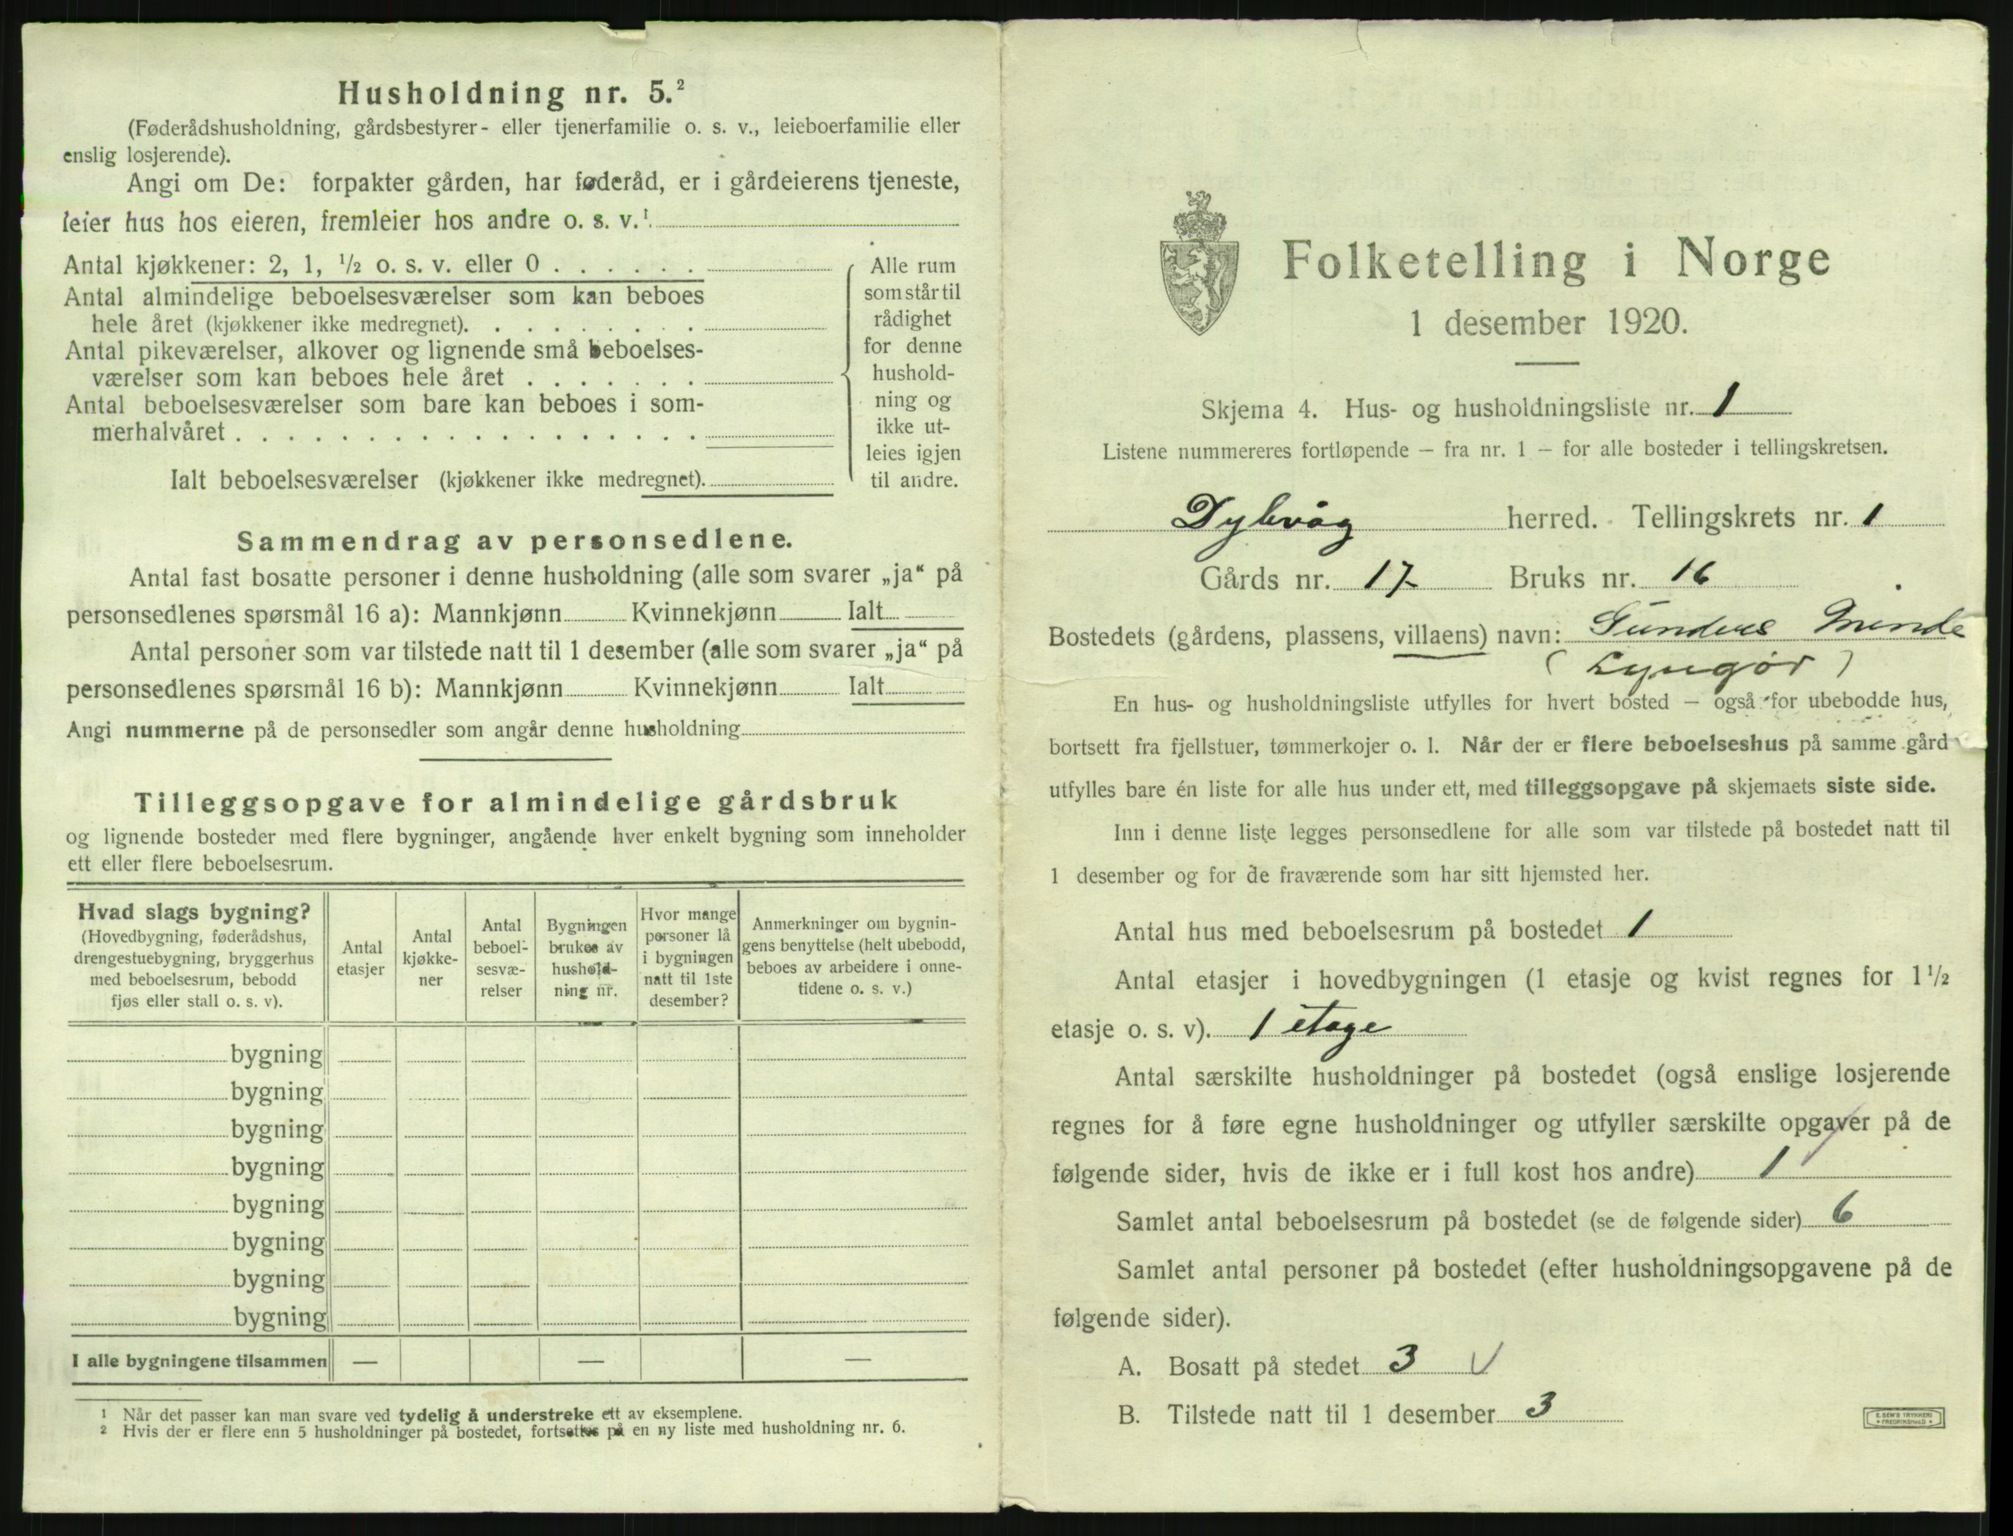 Husholdning nr. 5.²
(Føderådshusholdning, gårdsbestyrer- eller tjenerfamilie o. s. v., leieboerfamilie eller
enslig losjerende).
Angi om De: forpakter gården, har føderåd, er i gårdeierens tjeneste,
leier hus hos eieren, fremleier hos andre o. s. v.¹
Antal kjøkkener: 2, 1, ½ o. s. v. eller 0
Antal almindelige beboelsesværelser som kan beboes
hele året (kjøkkener ikke medregnet).
Antal pikeværelser, alkover og lignende små beboelses-
værelser som kan beboes hele året
Antal beboelsesværelser som bare kan beboes i som-
merhalvåret
Ialt beboelsesværelser (kjøkkener ikke medregnet).
Alle rum
som står til
rådighet
for denne
hushold-
ning og
ikke ut-
leies igjen
til andre.
Sammendrag av personsedlene.
Antal fast bosatte personer i denne husholdning (alle som svarer „ja“ på
personsedlenes spørsmål 16 a): Mannkjønn Kvinnekjønn Ialt
Antal personer som var tilstede natt til 1 desember (alle som svarer „ja“ på
personsedlenes spørsmål 16 b): Mannkjønn Kvinnekjønn Ialt
Angi nummerne på de personsedler som angår denne husholdning
Tilleggsopgave for almindelige gårdsbruk
og lignende bosteder med flere bygninger, angående hver enkelt bygning som inneholder
ett eller flere beboelsesrum.
Hvad slags bygning?
(Hovedbygning, føderådshus,
drengestuebygning, bryggerhus
med beboelsesrum, bebodd
fjøs eller stall o. s. v).
Antal
etasjer
Antal
kjøkke-
ner
Antal
beboel-
sesvæ-
relser
Bygningen
brukes av
hushold-
ning nr.
Hvor mange
personer lå
i bygningen
natt til 1ste
desember?
Anmerkninger om bygnin-
gens benyttelse (helt ubebodd,
beboes av arbeidere i onne-
tidene o. s. v.)
bygning
bygning
bygning
bygning
bygning
bygning
bygning
bygning
I alle bygningene tilsammen — — —
¹ Når det passer kan man svare ved tydelig å understreke ett av eksemplene.
² Hvis der er flere enn 5 husholdninger på bostedet, fortsettes på en ny liste med husholdning nr. 6.
Folketelling i Norge
1 desember 1920.
Skjema 4. Hus- og husholdningsliste nr. 1
Listene nummereres fortløpende – fra nr. 1 – for alle bosteder i tellingskretsen.
Dybvåg herred. Tellingskrets nr. 1
Gårds nr. 17 Bruks nr. 16
Bostedets (gårdens, plassens, villaens) navn: Gunders Minde
(Lyngør)
En hus- og husholdningsliste utfylles for hvert bosted – også for ubebodde hus,
bortsett fra fjellstuer, tømmerkojer o. l. Når der er flere beboelseshus på samme gård
utfylles bare én liste for alle hus under ett, med tilleggsopgave på skjemaets siste side.
Inn i denne liste legges personsedlene for alle som var tilstede på bostedet natt til
1 desember og for de fraværende som har sitt hjemsted her.
Antal hus med beboelsesrum på bostedet 1
Antal etasjer i hovedbygningen (1 etasje og kvist regnes for 1½
etasje o. s. v). 1 etage
Antal særskilte husholdninger på bostedet (også enslige losjerende
regnes for å føre egne husholdninger og utfyller særskilte opgaver på de
følgende sider, hvis de ikke er i full kost hos andre) 1
Samlet antal beboelsesrum på bostedet (se de følgende sider) 6
Samlet antal personer på bostedet (efter husholdningsopgavene på de
følgende sider).
A. Bosatt på stedet 3 V
B. Tilstede natt til 1 desember 3